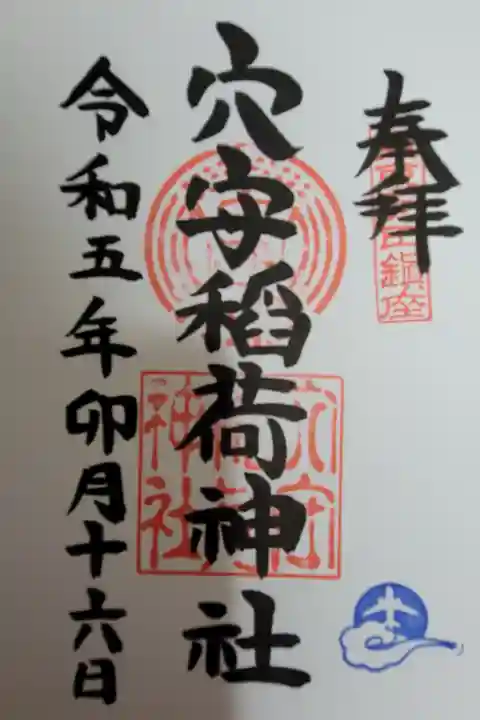 奉拝
鎮座
穴守稲荷神社
穴守
神社
令和五年卯月十六日